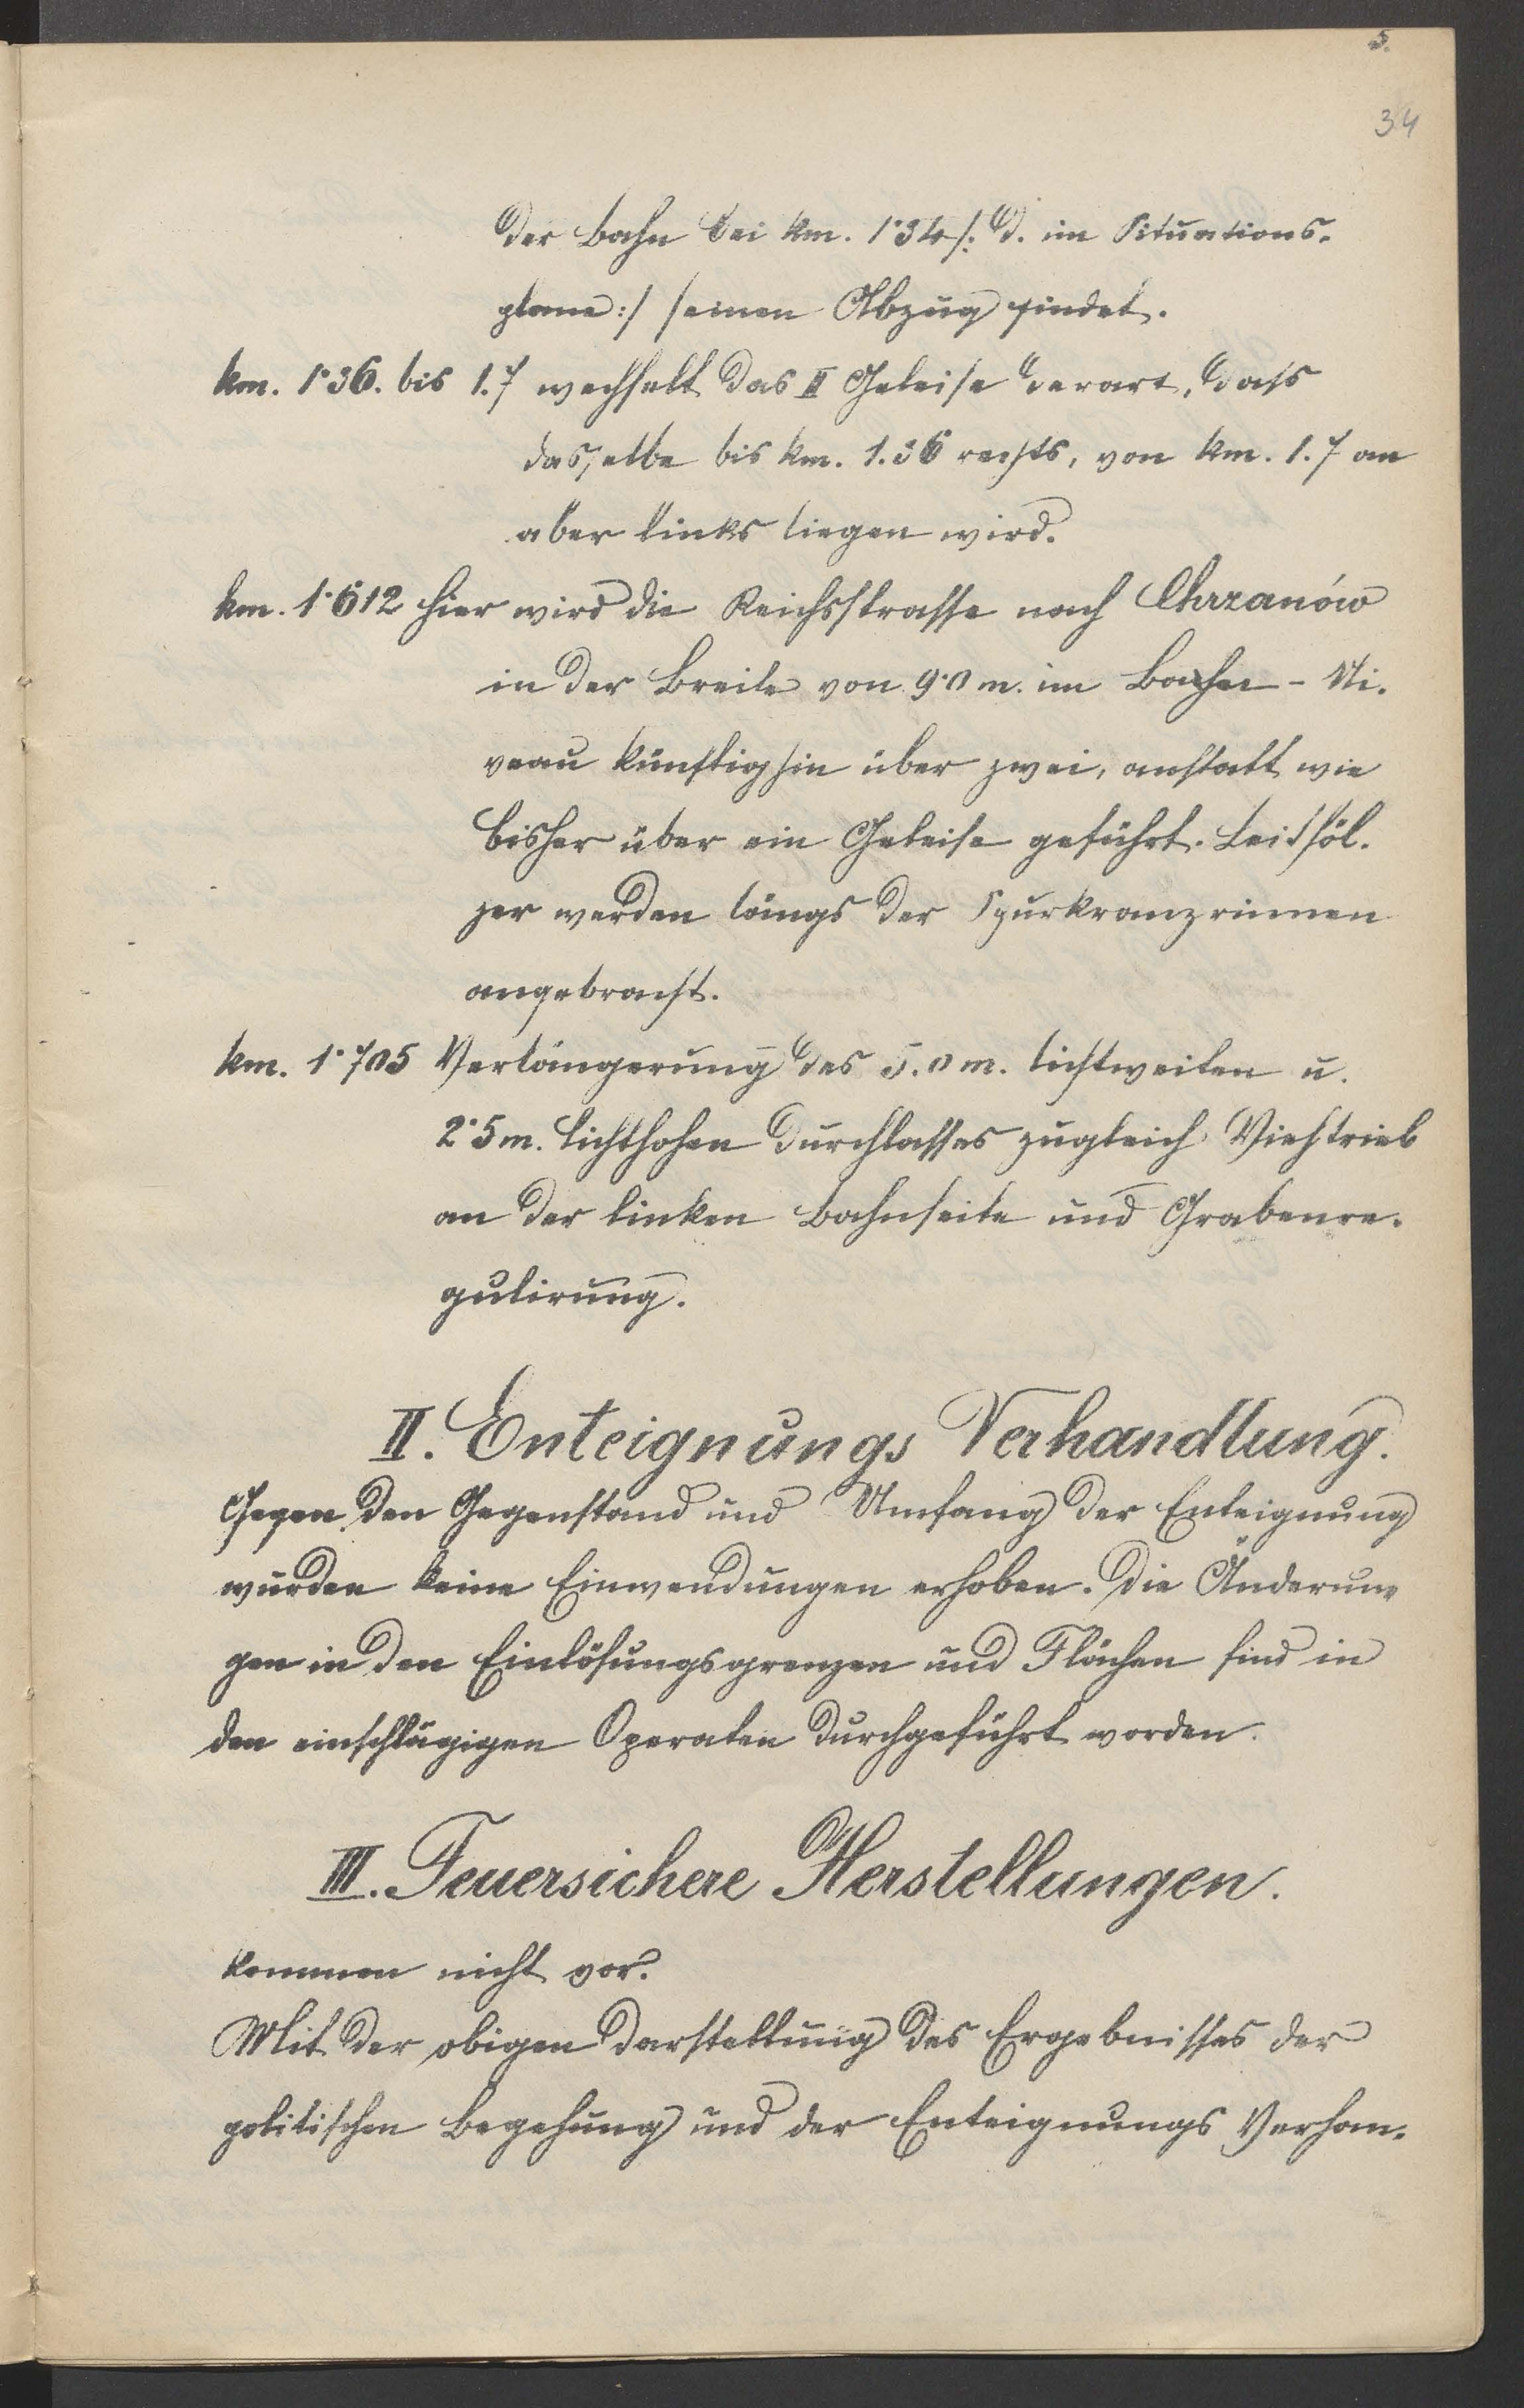 5.
34
der Bahn bei km. 1·34 /: d. im Situations-
plane :/ seinen Abzug findet.
km. 1·36. bis 1.7 wechselt das II Geleise derart, dass
dasselbe bis km. 1.36 rechts, von km. 1.7 an
aber links liegen wird.
km. 1·612 hier wird die Reichsstrasse nach Chrzanów
in der Breite von 9·0 m. im Bahn-Ni-
veau künftighin über zwei, anstatt wie
bisher über ein Geleise geführt. Leithöl-
zer werden längs der Spurkranzrinnen
angebracht.
km. 1·705 Verlängerung des 5.0 m. lichtweiten u.
2·5 m. lichthohen Durchlasses zugleich Viehtrieb
an der linken Bahnseite und Grabenre-
gulirung.
II. Enteignungs Verhandlung.
Gegen den Gegenstand und Umfang der Enteignung
wurden keine Einwendungen erhoben. Die Änderun-
gen in den Einlösungsgrenzen und Flächen sind in
den einschlägigen Operaten durchgeführt worden.
III. Feuersichere Herstellungen.
kommen nicht vor.
Mit der obigen Darstellung des Ergebnisses der
politischen Begehung und der Enteignungs Verhan-